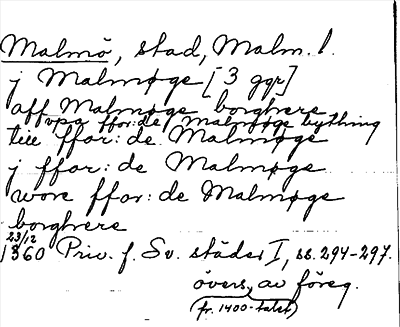 Malmö, stad, Malm. l.
j Malmøge [3 ggr]
aff Malmøge borghere
vpa ffor:de Malmøge bything
till ffor:de Malmøge
j ffor:de Malmøge
wore ffor:de Malmøge
borghere
23/12
1360 Priv. f. Sv. städer I, ss. 294-297.
övers, av föreg.
(fr. 1400-talet)